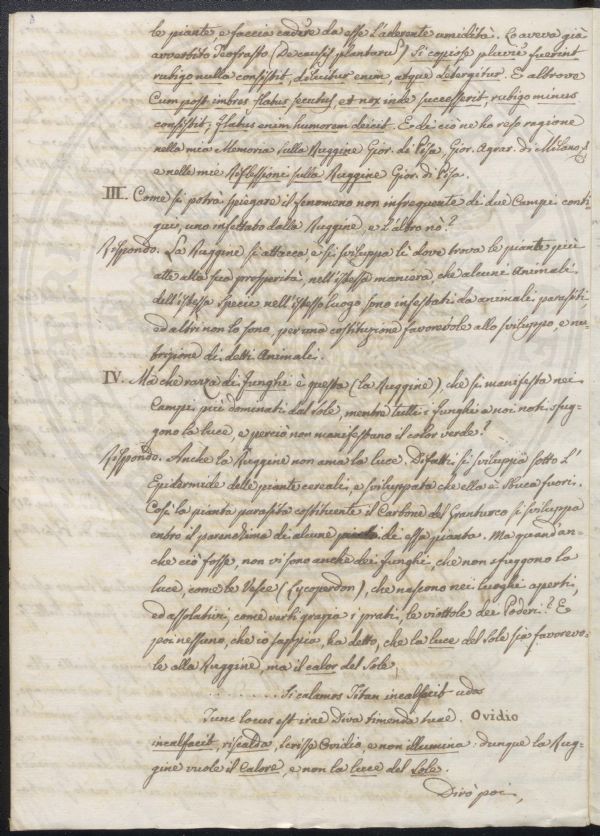 le piante, e faccia cadere da esse l'aderente umidità. Lo aveva già
avvertito Teofrasto (De causis plantarum) Si copiose pluviè fuerint
rubigo nulla consistit, diluitur enim, atque detergitur. E altrove
Cum post imbres flatus secutus, et nox inde successerit, rubigo minus
consistit; flatus enim humorem deicit. E di ciò ne ho reso ragione
nella mia Memoria sulla Ruggine Gior. di Pisa, Gior. Agrar. di Milano,
e nelle mie Reflessioni sulla Ruggine Gior. di Pisa.
III. Come si potrà spiegare il fenomeno non infrequente di due Campi conti
gui, uno infettato dalla Ruggine, e l'altro nò?
Rispondo. La Ruggine si attacca, e si sviluppa lì dove trova le piante più
atte alla sua prosperità, nell'istessa maniera che alcuni Animali
dell'istessa specie nell'istesso luogo sono infestati da animali parasiti
ed altri non lo sono, per una costituzione favorevole allo sviluppo, e nu-
trizione di detti Animali.
IV. Ma che razza di funghi è questa (la Ruggine), che si manifesta nei
Campi più dominati dal sole, mentre tutti i funghi a noi noti sfug-
gono la luce, e perciò non manifestano il color verde?
Rispondo. Anche la Ruggine non ama la luce. Difatti si sviluppa sotto l'
Epidermide delle piante cereali, e sviluppata che ella è sbuca fuori.
Così la pianta parasita costituente il Carbone del Granturco si sviluppa
entro il parenchima di alcune di essa pianta. Ma quand'an-
che ciò fosse, non vi sono anche dei funghi, che non sfuggono la
luce, come le Vesce (Lycoperdon), che nascono nei luoghi aperti,
ed assolativi, come vorti grazia i prati, le viottole dei Poderi? E
poi nessuno, che io sappia, ha detto, che la luce del Sole sia favorevo-
le alla Ruggine, ma il calor del Sole,
. . . . . . . . Si calamos Titan incalfacit udos
Tunc locus est irae Diva timenda tuae. Ovidio
incalfacit, riscalda, scrisse Ovidio, e non illumina: dunque la Rug-
gine vuole il Calore, e non la luce del Sole.
Dirò poi,